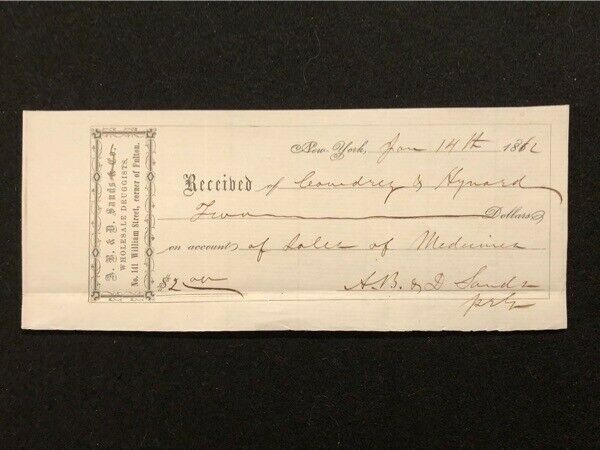 A. B. & D. Sands & Co.
WHOLESALE DRUGGISTS.
No. 141 William Street, corner of Fulton.
New-York, Jan 14th 1862
Received of & Hynard
Two Dollars
on account of Sales of Medicines
$2.00 A.B. & D Sands